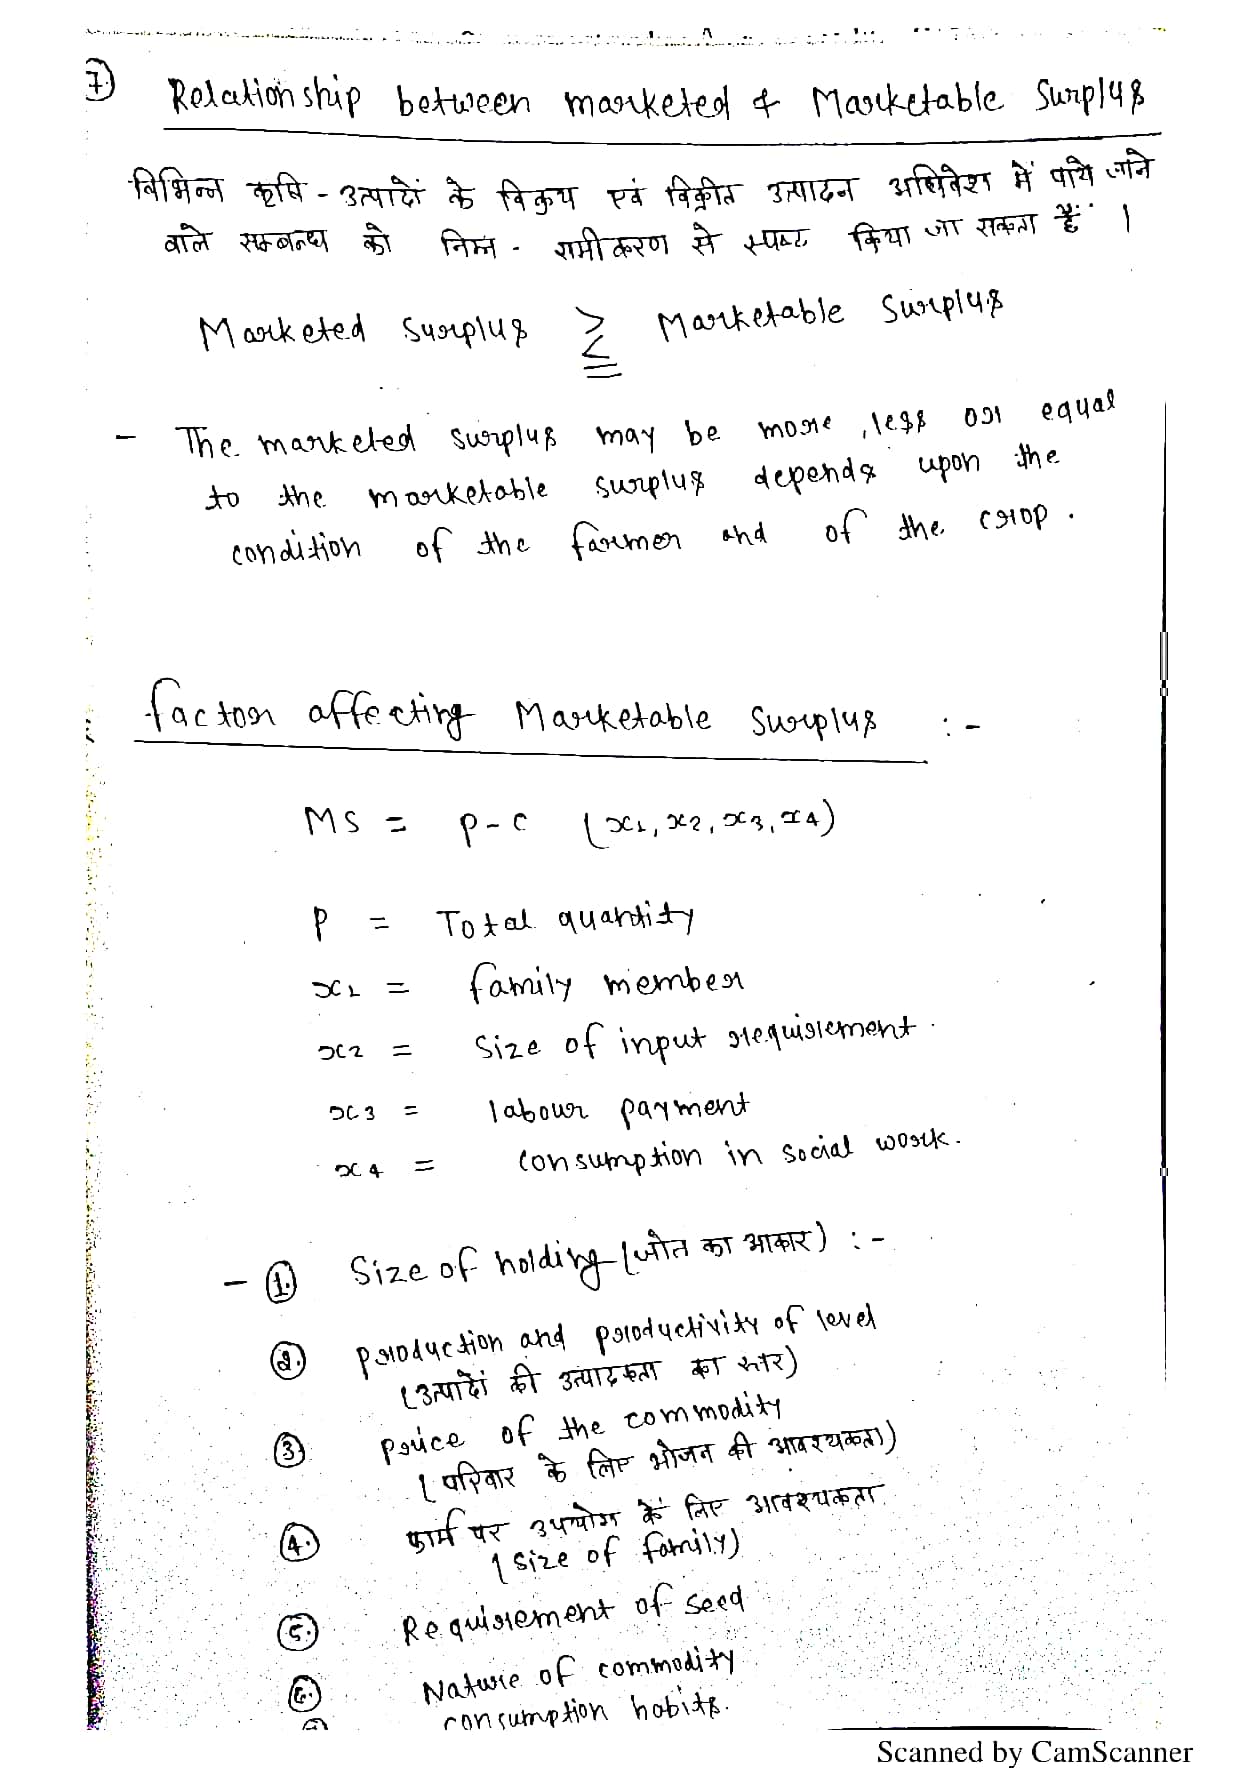 7.) Relationship between marketed & Marketable Surplus
विभिन्न कृषि - उत्पादों के विक्रय एवं विक्रीत उत्पादन अधिवेश में पाये जाने
वाले सम्बन्ध को निम्न - समीकरण से स्पष्ट किया जा सकता हैं ।
Marketed Surplus ⋛ Marketable Surplus
- The marketed surplus may be more, less or equal
to the marketable surplus depends upon the
condition of the farmer and of the crop.
factor affecting Marketable Surplus :-
MS = P-C (x1, x2, x3, x4)
P = Total quantity
x1 = family member
x2 = Size of input requirement.
x3 = labour payment
x4 = consumption in social work.
- 1. Size of holding (जोत का आकार) :-
2. production and productivity of level
(उत्पादों की उत्पादकता का स्तर)
3. price of the commodity
(परिवार के लिए भोजन की आवश्यकता)
4. फार्म पर उपयोग कें लिए आवश्यकता
(size of family)
5. Requirement of seed
6. Nature of commodity
consumption habits.
Scanned by CamScanner